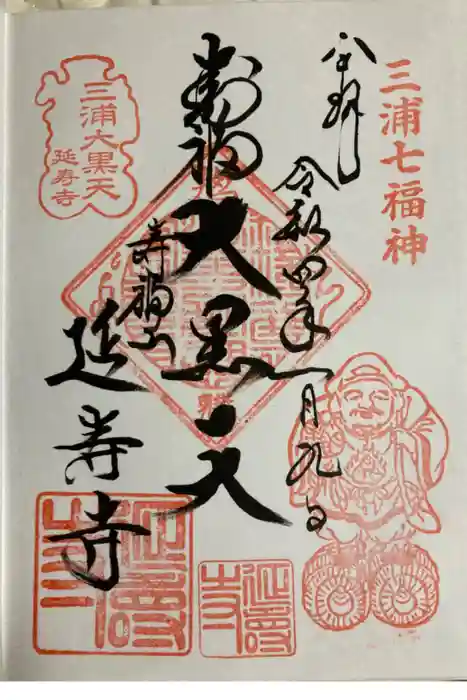 三浦七福神
奉拝
令和四年一月九日
寿福
大黒天
寿福山
延寿寺
三浦大黒天
延寿寺
延壽寺